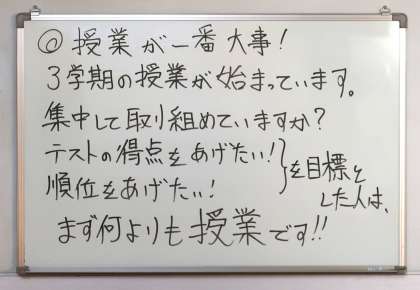 ◎授業が一番大事!
3学期の授業が始まっています。
集中して取り組めていますか?
テストの得点をあげたい!
順位をあげたい!
}を目標と
した人は、
まず何よりも授業です!!